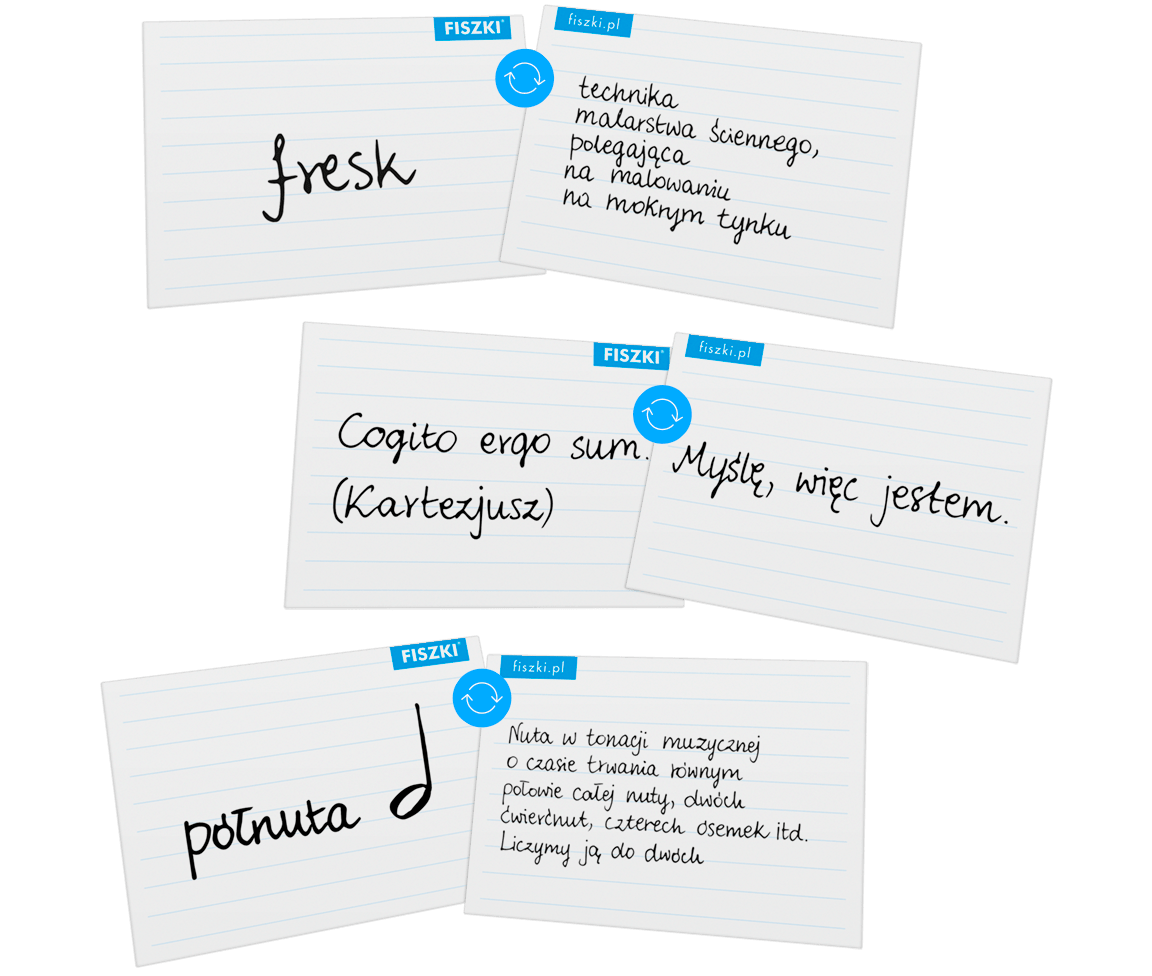 FISZKI®
fresk
fiszki.pl
technika
malarstwa ściennego,
polegająca
na malowaniu
na mokrym tynku
FISZKI®
Cogito ergo sum.
(Kartezjusz)
fiszki.pl
Myślę, więc jestem.
FISZKI®
półnuta
fiszki.pl
Nuta w tonacji muzycznej
o czasie trwania równym
połowie całej nuty, dwóch
ćwierćnut, czterech ósemek itd.
Liczymy ją do dwóch